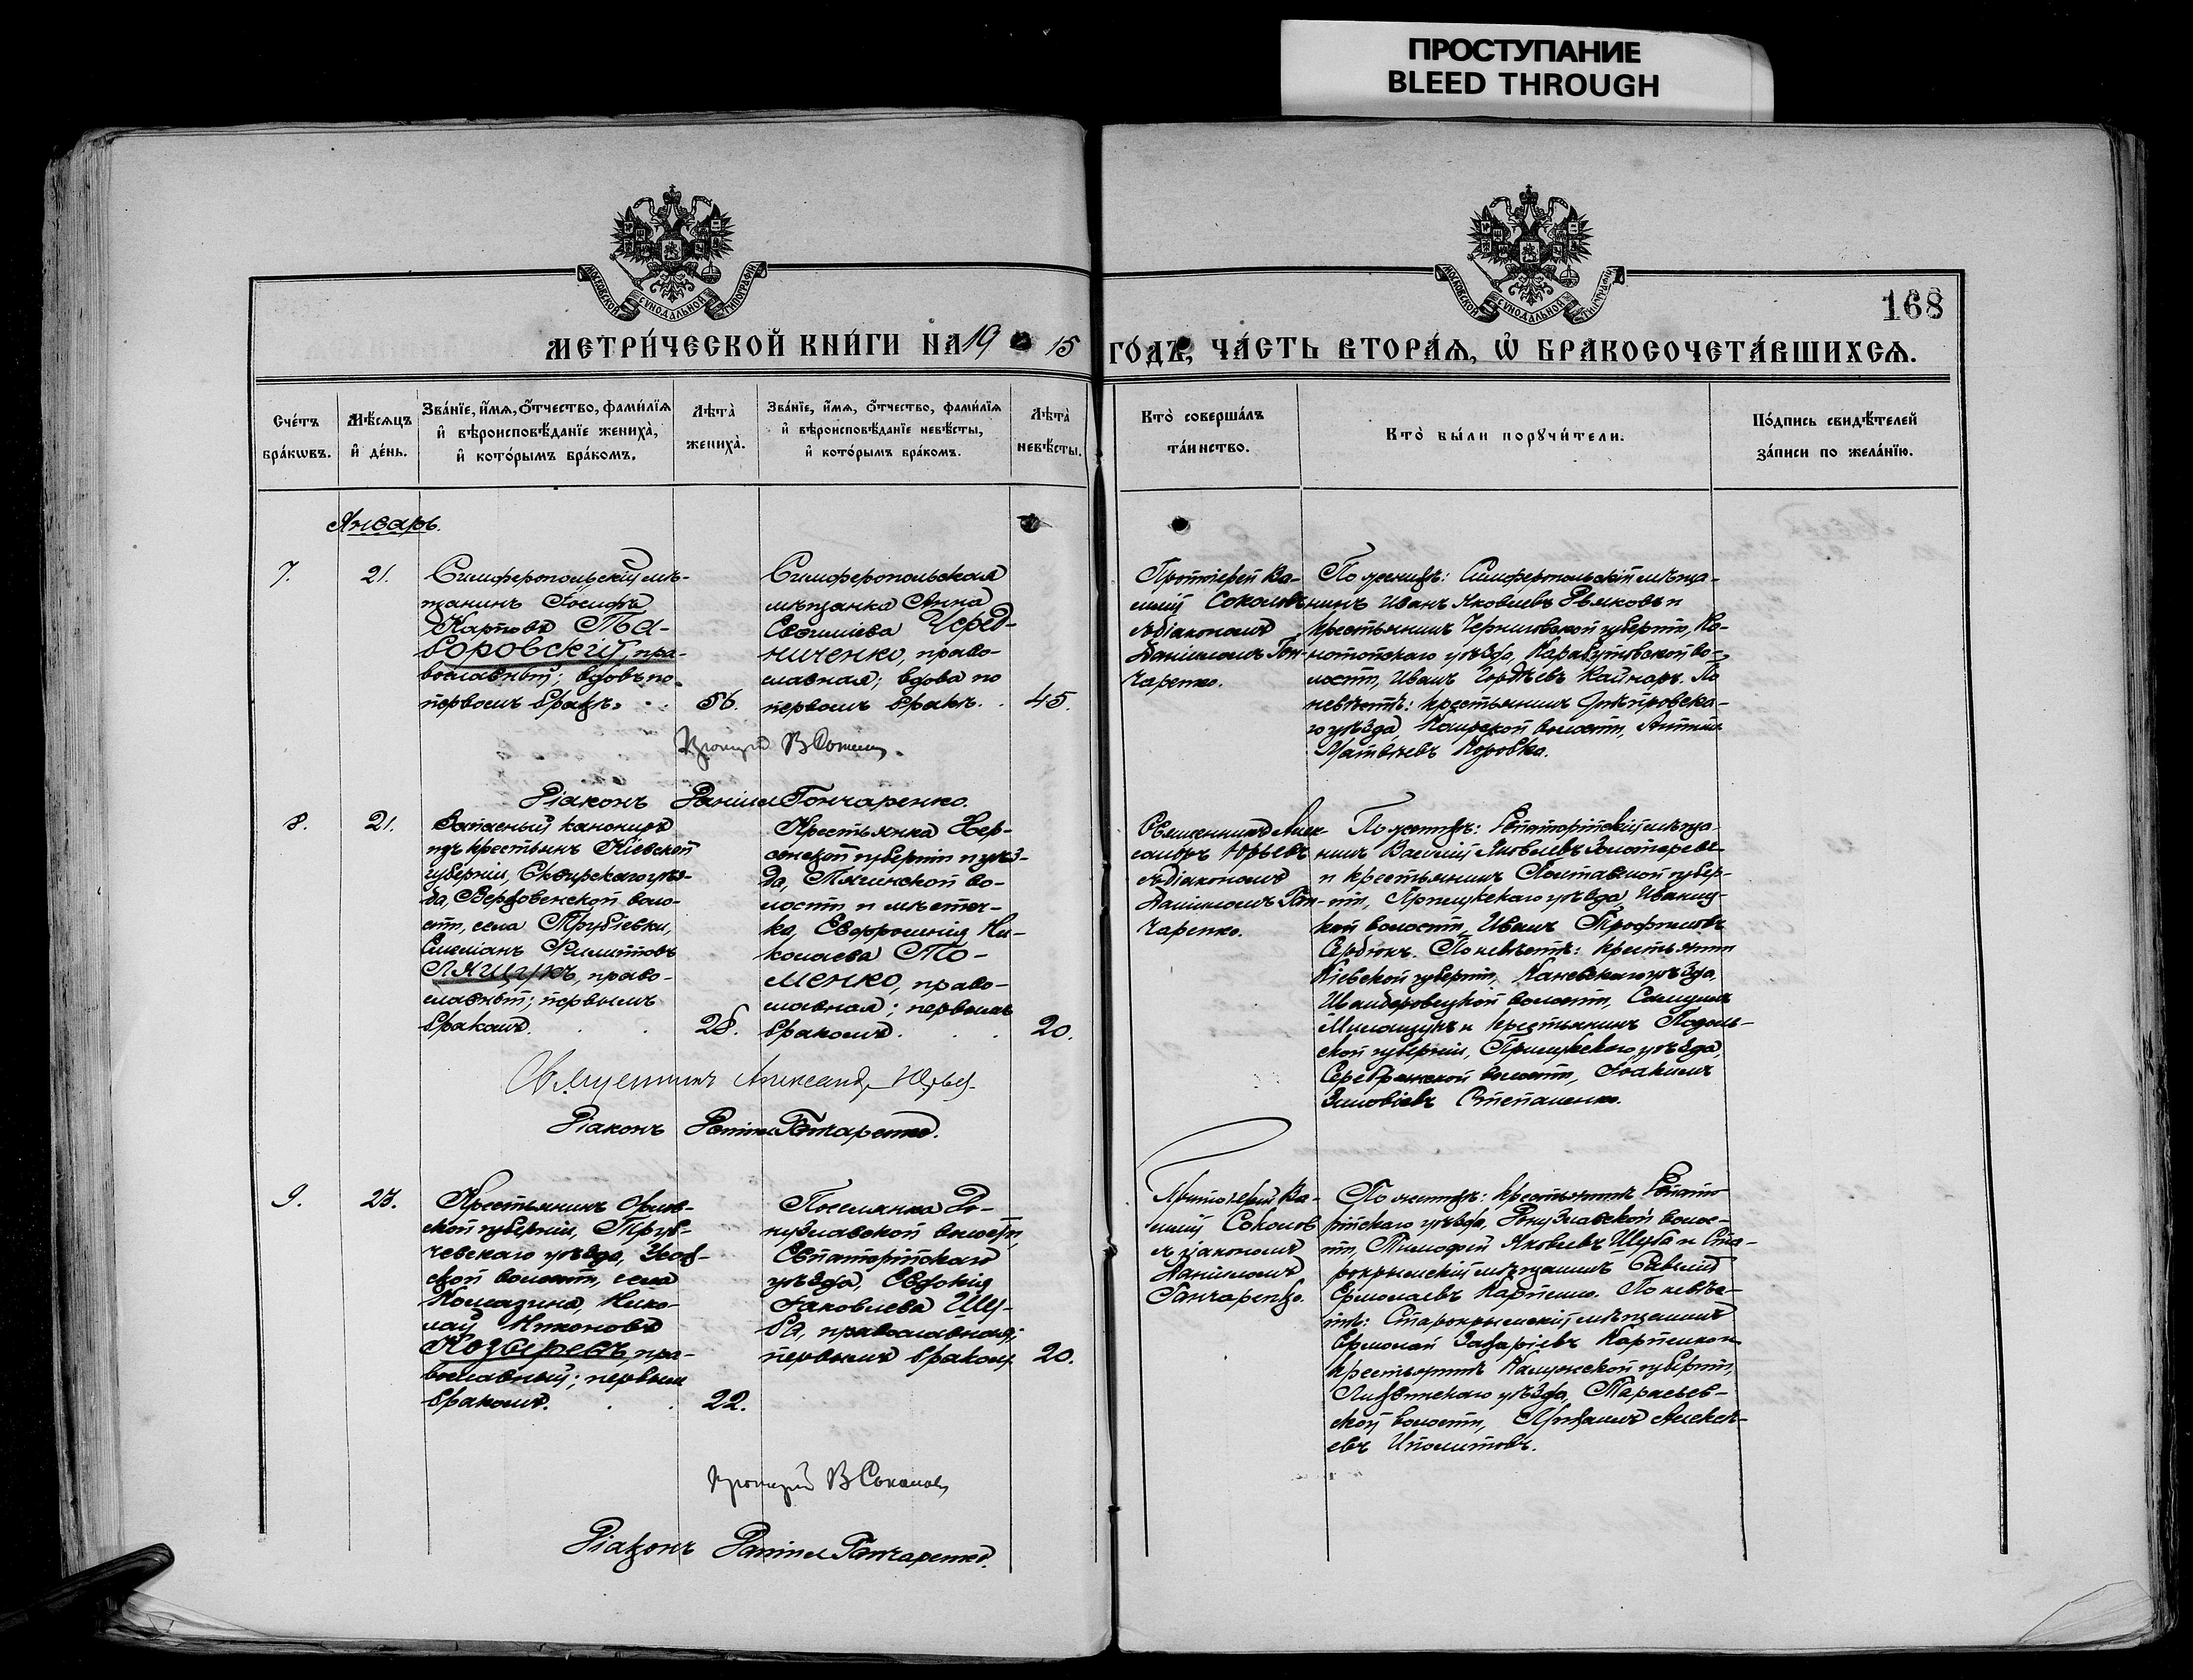 ПРОСТУПАНИЕ
BLEED THROUGH
МОСКОВСКОЙ СѴНОДАЛЬНОЙ ТИПОГРАФІИ
МОСКОВСКОЙ СѴНОДАЛЬНОЙ ТИПОГРАФІИ
168
МЕТРИ́ЧЕСКОЙ КНИ́ГИ НА 19 15 ГО́ДЪ, ЧА́СТЬ ВТОРА́Ѧ, Ѽ БРАКОСОЧЕТА́ВШИХСѦ.
Сче́тъ
бра́кѡвъ.
Мѣ́сѧцъ
и҆ де́нь.
Зва́нїе, и҆́мѧ, о҆́тчество, фами́лїѧ
и҆ вѣроисповѣ́данїе жениха̀,
и҆ кото́рымъ бра́комъ.
Лѣта̀
жениха̀.
Зва́нїе, и҆́мѧ, о҆́тчество, фами́лїѧ
и҆ вѣроисповѣ́данїе невѣ́сты,
и҆ кото́рымъ бра́комъ.
Лѣта̀
невѣ́сты.
Кто̀ соверша́лъ
та́инство.
Кто̀ бы́ли порꙋчи́тели.
По́дпись свидѣ́телей
за́писи по жела́нїю.
Январь.
7.
21.
Симферопольскій мѣ-
щанинъ Іосифъ
Карповъ Та-
боровскій, пра-
вославный; вдовъ по
первомъ бракѣ.
56.
Симферопольская
мѣщанка Анна
Евѳиміева Черед-
ниченко, право-
славная; вдова по
первомъ бракѣ.
45.
Протоіерей Ва-
силій Соколовъ
съ діакономъ
Даніиломъ Гон-
чаренко.
По женихѣ: Симферопольскій мѣща-
нинъ Иванъ Яковлевъ Дьяковъ и
крестьянинъ Черниговской губерніи, Ко-
нотопскаго уѣзда, Карабутовской во-
лости, Иванъ Гордѣевъ Кайноръ. По
невѣстѣ: крестьянинъ Днѣпровска-
го уѣзда, Каирской волости, Антипъ
Матвѣевъ Коровка.
Діаконъ Даніилъ Гончаренко.
8.
21.
Запасный канониръ
изъ крестьянъ Кіевской
губерніи, Сквирскаго уѣз-
да, воло-
сти, села Трубіевки,
Симеонъ Филипповъ
Лящукъ, право-
славный; первымъ
бракомъ.
28.
Крестьянка Хер-
сонской губерніи и уѣз-
да, Тягинской во-
лости и мѣстеч-
ка, Евфросинія Ни-
колаева То-
менко, право-
славная; первымъ
бракомъ.
20.
Священникъ Алек-
сандръ Юрьевъ
съ діакономъ
Даніиломъ Гон-
чаренко.
По женихѣ: Евпаторійскій мѣща-
нинъ Василій Яковлевъ Золотаревъ
и крестьянинъ Полтавской губер-
ніи, Прилукскаго уѣзда, Иваниц-
кой волости, Иванъ Трофимовъ
Сердюкъ. По невѣстѣ: крестьянинъ
Кіевской губерніи, Каневскаго уѣзда,
волости, Самуилъ
и крестьянинъ Подоль-
ской губерніи, Прилукскаго уѣзда,
Серебрянской волости, Іоакимъ
Зиновіевъ Степаненко.
Священникъ Александръ Юрьев
Діаконъ Даніилъ Гончаренко.
9.
23.
Крестьянинъ Орлов-
ской губерніи, Труб-
чевскаго уѣзда,
ской волости, села
Комягина, Нико-
лай Никоновъ
Козыревъ, пра-
вославный; первымъ
бракомъ.
22.
Поселянка До-
нузлавской волости,
Евпаторійскаго
уѣзда, Евдокія
Іаковлева Щер-
ба, православная;
первымъ бракомъ
20.
Протоіерей Ва-
силій Соколовъ
съ діакономъ
Даніиломъ
Гончаренко.
По женихѣ: крестьянинъ Евпато-
рійскаго уѣзда, Донузлавской волос-
ти, Тимофей Яковлевъ Щерба и Ста-
рокрымскій мѣщанинъ
Ермолаевъ Карпенко. По невѣс-
тѣ: Старокрымскій мѣщанинъ
Ермолай Захаріевъ Карпенко и
крестьянинъ Калужской губерніи,
Лихвинскаго уѣзда,
ской волости, Алексѣ-
евъ Иполитовъ.
Протоіерей В Соколовъ
Діаконъ Даніилъ Гончаренко.